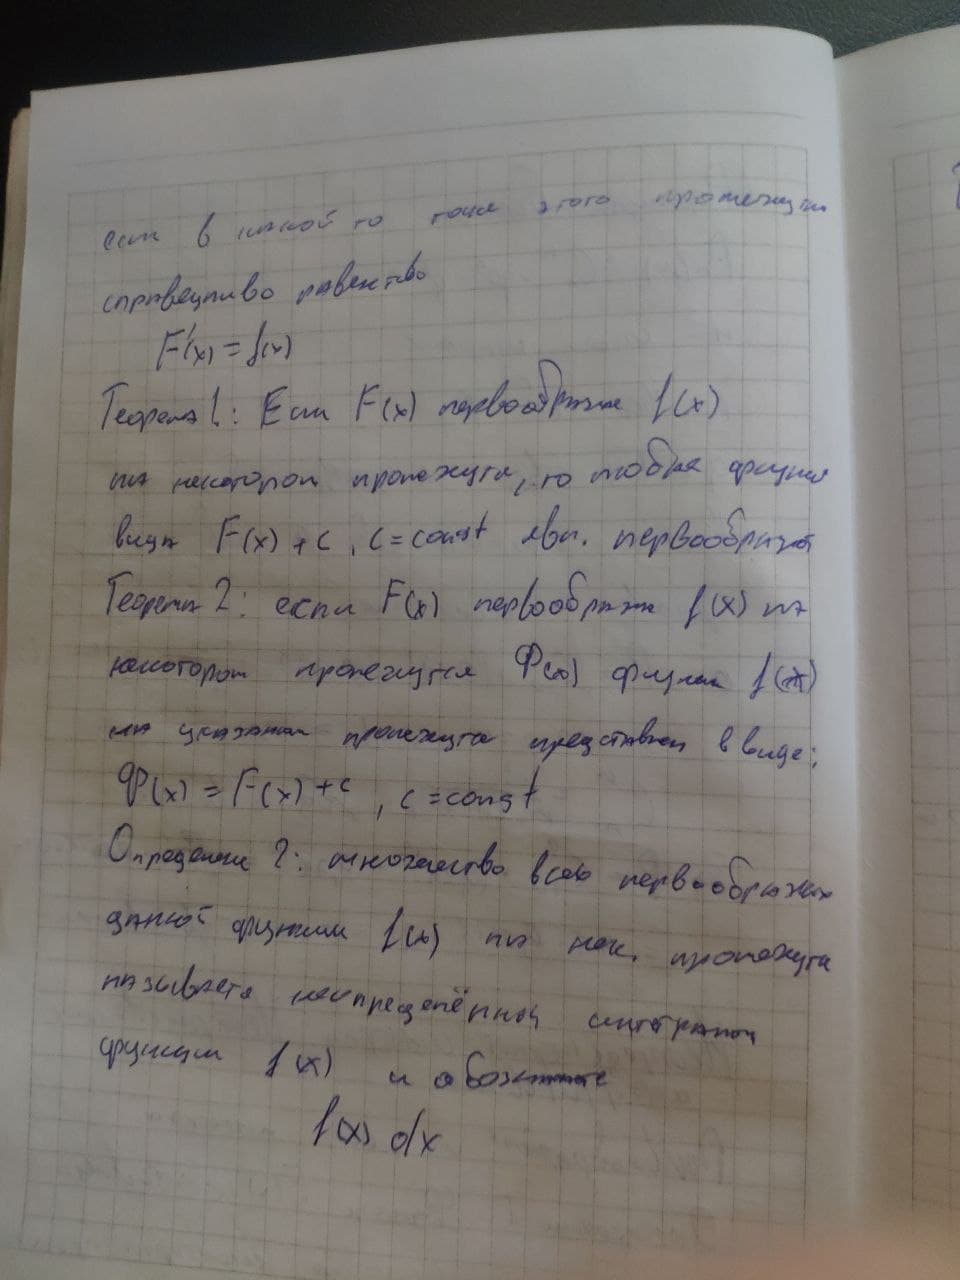 если в какой то точке этого промежутка
справедливо равенство
F'(x) = f(x)
Теорема 1: Если F(x) первообразная f(x)
на некотором промежутке, то любая функция
вида F(x) + c, c = const явл. первообразной
Теорема 2: если F(x) первообразная f(x) на
некотором промежутке Ф(x) функции f(x)
на указаном промежутке представлен в виде:
Ф(x) = F(x) + c, c = const
Определение 2: множество всех первообразных
данной функции f(x) на нек. промежутке
называется неопределённой интегралом
функции f(x) и обозначае
f(x) dx